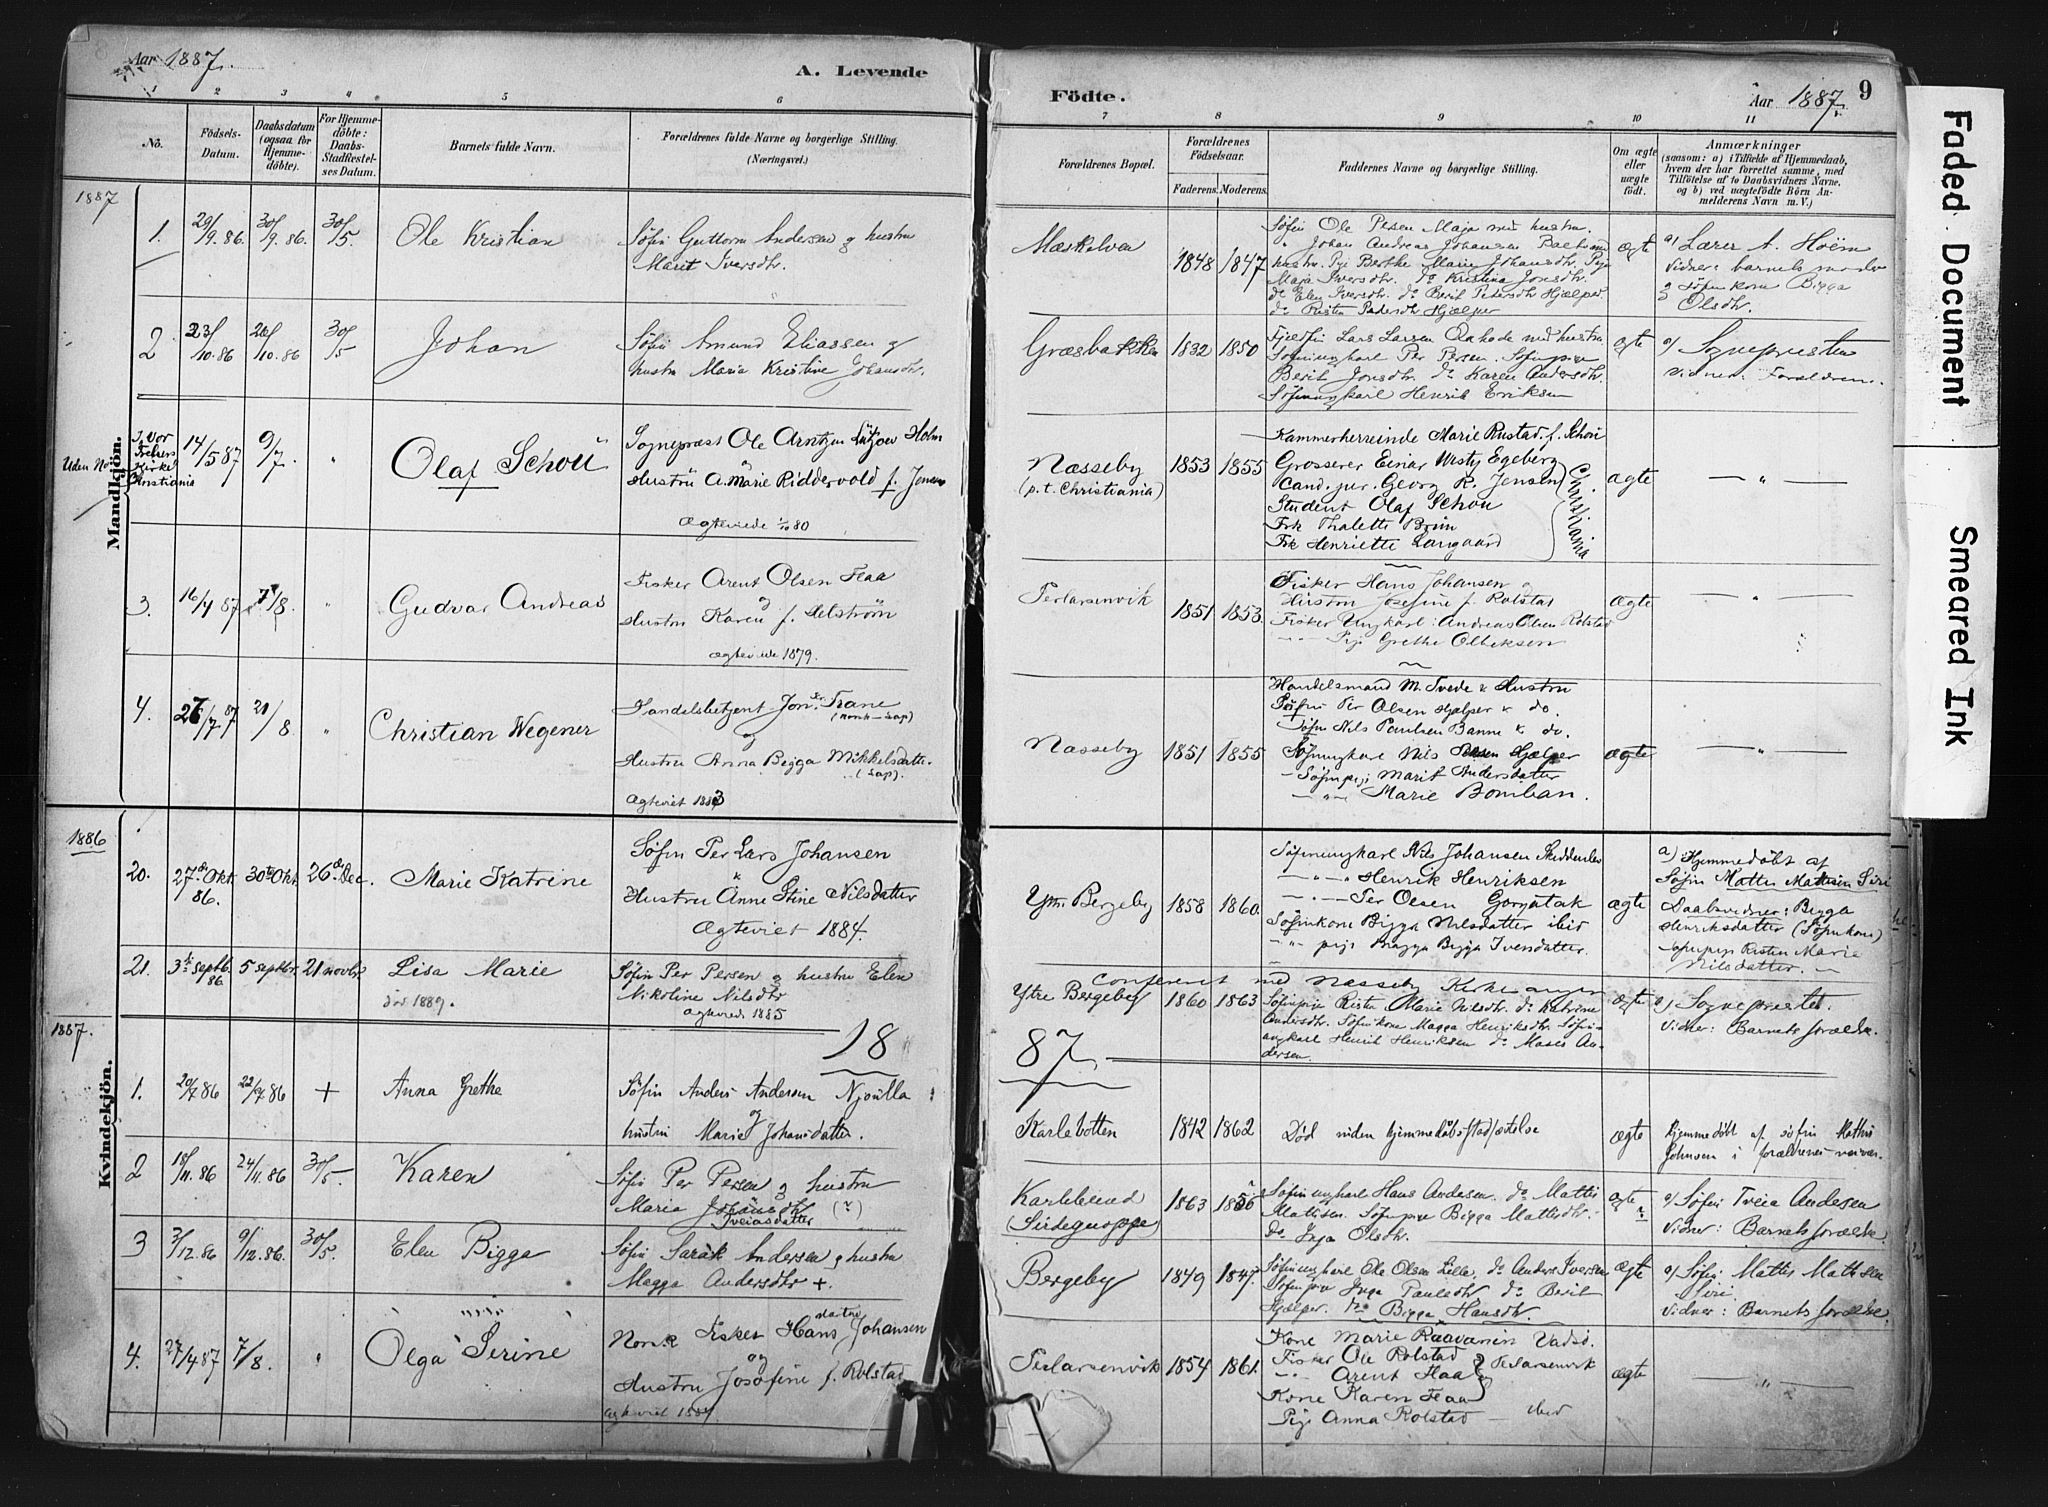 Aar 1887.
A. Levende
1 2 3 4 5 6
No.
Födsels-Datum.
Daabsdatum (ogsaa for Hjemme-döbte).
For Hjemme-döbte: Daabs-Stadfæstel-ses Datum.
Barnets fulde Navn.
Forældrenes fulde Navne og borgerlige Stilling.
(Næringsvei.)
1887
Mandkjön.
1. 29/9.86. 30/9.86. 30/5. Ole Kristian
Søfin Guttorm Andersen og hustru
Marit Iversdtr.
2 23/10.86 26/10.86 30/5 Johan
Søfin Amund Eliassen og
hustru Maria Kristine Johansdtr.
Uden No
I Vor
Frelsers
Kirke
Christiania
14/5 87 9/7 " Olaf Schou
Sognepræst Ole Arntzen Lützow Holm
Hustru A. Marie Riddervold f. Jensen
Ægteviede 1/10 80
3. 16/4 87 7/8. " Gudvar Andreas
Fisker Arent Olsen Flaa
og
Hustru Karen f. Helström
Ægteviede 1879.
4. 26/7 87 21/8. " Christian Wegener
Handelsbetjent Jon. Trane
(norsk-lap)
og
Hustru Anna Bigga Mikkelsdatter
(Lap).
Ægteviet 1883
1886
20. 27de Okt. 86. 30te Okt. 26de Dec. Marie Katrine
Søfin Per Lars Johansen
&
Hustru Anne Stine Nilsdatter
Ægteviet 1884.
21. 3die Septb. 86 5 septbr. 21 novbr. Lisa Marie
død 1889.
Søfin Per Persen og hustru Elen
Nikoline Nilsdtr
Ægteviede 1885
1887.
18
Kvindekjön.
1. 20/7 86 22/7 86 + Anna Grethe
Søfin Anders Andersen Njoulla
og
hustru Marie Johansdatter.
2 18/11.86 24/11.86 30/5. Karen
Søfin Per Persen og hustru
Maria Johansdtr (~)
Tveiasdatter
3 3/12.86 9/12.86. 30/5. Elen Bigga
Søfin Sarak Andersen og hustru
Magga Andersdtr +.
4. 27/4 87 7/8. " Olga Serine
Norsk Fisker Hans Johansen
og
Hustru Josefine f. Rolstad
Ægteviet
Födte.
Aar 1887. 9
7 8 9 10 11
Forældrenes Bopæl.
Forældrenes Födselsaar.
Faderens. Moderens.
Faddernes Navne og borgerlige Stilling.
Om ægte eller uægte födt.
Anmærkninger
(saasom: a) i Tilfælde af Hjemmedaab,
hvem der har forrettet samme, med
Tilföielse af to Daabsvidners Navne,
og b) ved uægtefödte Börn An-
melderens Navn m. V.)
Mæskelven 1848 1847
Søfin Ole Persen Maja med hustru.
" Johan Andreas Johansen
hustru. Pige Berthe Marie Johansdtr. Pige
Maja Iversdtr. do Kristina Jonsdtr.
do Elen Iversdtr. do Berit Petersdtr Hjælper.
do Risten Pedersdtr Hjælper
ægte
a) Lærer A. Hoëm
Vidner: barnets moder
& Søfinkone Bigga
Olsdtr.
Græsbakken 1832 1850
Fjeldfin Lars Larsen med hustru
Søfinungkarl Per Persen. Søfinpige
Berit Jonsdtr. do Karen Andersdtr.
Søfinungkarl Henrik Eriksen
ægte
a) Sognepresten
Vidner: Forældrene.
Kammerherreinde Marie Rustad f. Schou
Næsseby 1853 1855
(p.t. Christiania)
Grosserer Einar Westy Egeberg
Cand. jur. Georg R. Jensen
Student Olaf Schou
Frk Thalette Brun
Frk Henriette Langaard
Christiania
ægte
— " —
Perlarsenvik 1851 1853.
Fisker Hans Johansen og
Hustru Josefine f. Rolstad
Fisker Ungkarl: Andreas Olsen Rolstad
— Pige Grethe Olbeksen
ægte
— " —
Næsseby 1851 1855
Handelsmand M. Tvede & Hustru
Søfin Per Olsen Hjælper & do.
Søfin Nils Paulsen Banne & do.
Søfinungkarl Nils Persen Hjælper
— Søfinpige Marit Andersdatter
— " — Marie Bomban.
ægte
— " —
Ytr. Bergeby 1858 1860.
Søfinungkarl Nils Johansen
— " — " Henrik Henriksen
— " — Per Olsen Gorgatak
Søfinkone Bigga Nilsdatter ibid
— " — pige Magga Bigga Iversdatter.
ægte
a) Hjemmedøbt af
Søfin Mathis Mathisen Siri
Daabsvidner: Bigga
Henriksdatter (Søfinkone)
Søfinpige Risten Marie
Nilsdatter. —
Conferent med Næsseby Kirke
Ytre Bergeby 1860 1863
Søfinpige Risten Marie Nilsdtr. do Katrine
Andersdtr. Søfinkone Magga Henriksdtr. Søfin-
ungkarl Henrik Henriksen do Moses An-
dersen.
ægte
a) Sognepræstet.
Vidner: Barnets forældre.
87
Karlebotten 1842 1862
Död uden hjemmedåbsstadfæstelse
ægte
Hjemmedöbt af söfin Mathis
Johnsen i forældrenes nærvær.
Karlebund 1863 1856
(Sirdegoppe)
Søfinungkarl Hans Andersen. do Mattis
Mattisen. Søfinpige Bigga Mattisdtr.
do Inga Olsdtr.
ægte
a) Søfin Tveia Andersen
Vidner: Barnets forældre.
Bergeby 1849 1847.
Søfinungkarl Ole Olsen Lille, do Anders Iversen
Søfinpige Inga Paulsdtr do Berit
Hjælper. do Bigga Hansdtr.
ægte
a) Søfin Mattis Mathisen
Siri
Vidner: Barnets forældre.
Perlarsenvik 1854 1861.
Kone Marie Raavanin Vadsø.
Fisker Ole Rolstad
— " — Arent Flaa
Kone Karen Flaa
Perlarsenvik
Pige Anna Rolstad — ibid
ægte
— " —
Faded Document
Smeared Ink